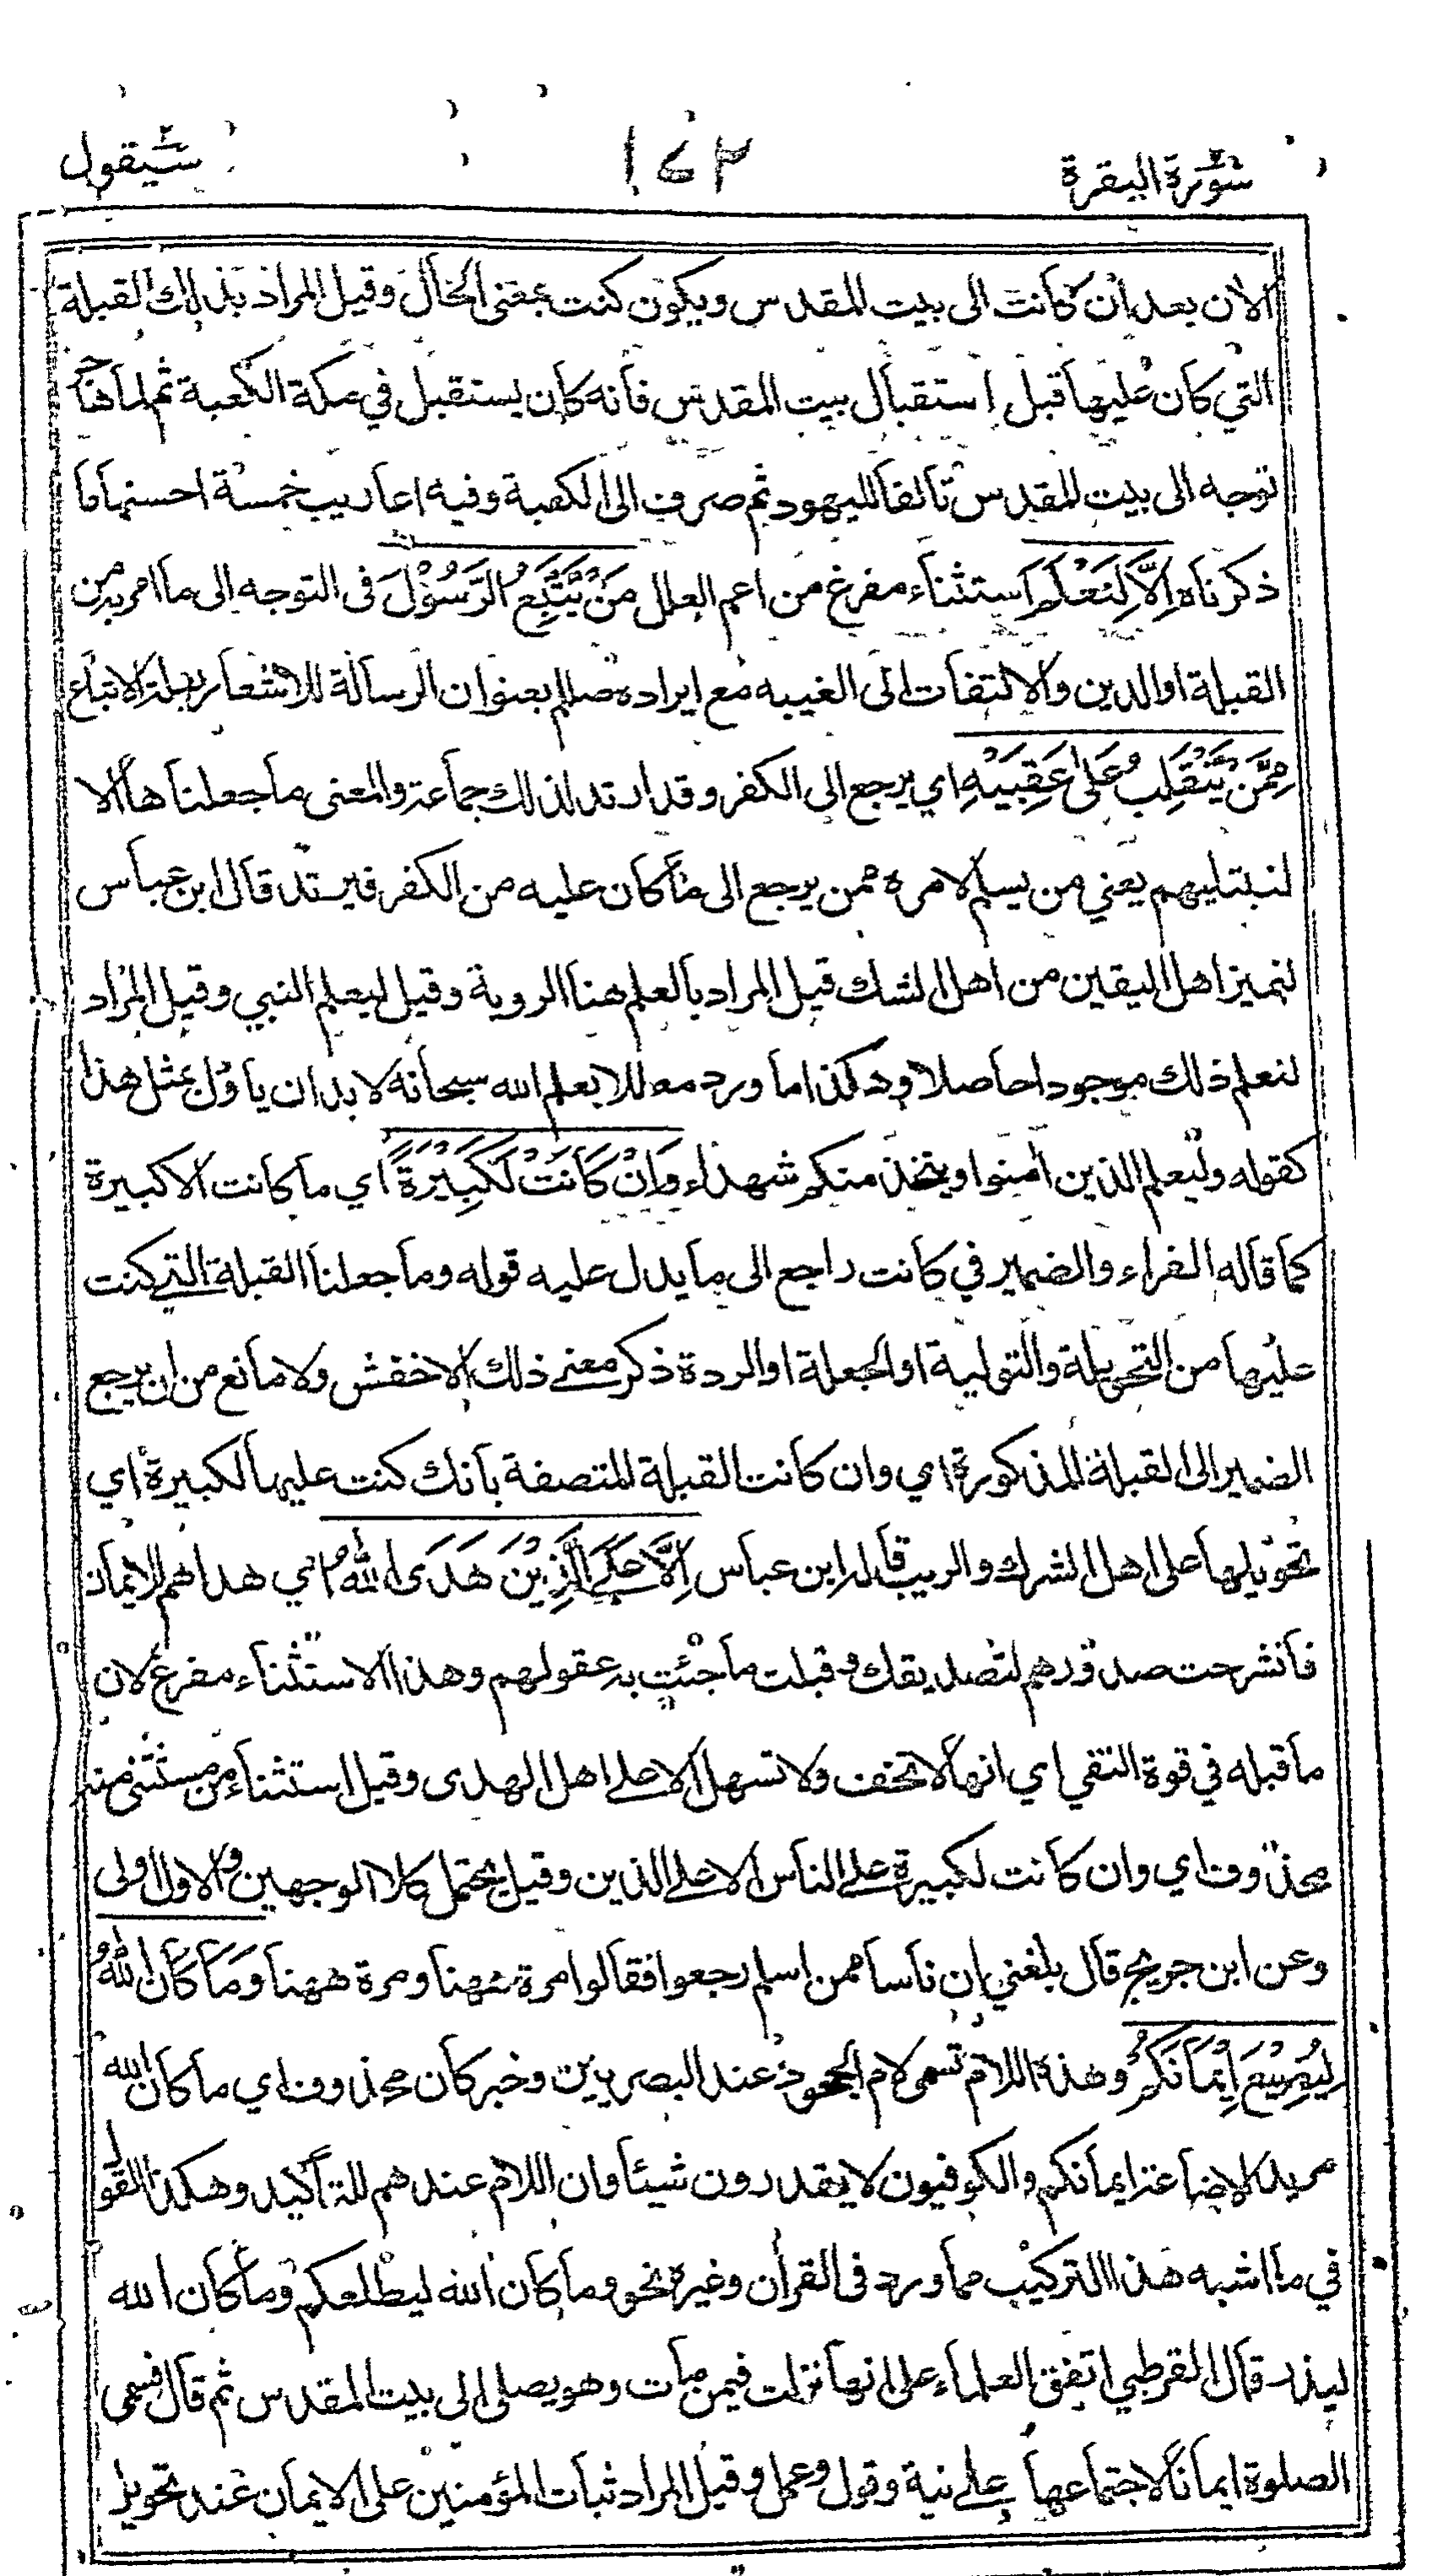 سورة البقرة ١٤٢ سيقول
الان بعد ان كانت الى بيت المقدس ويكون كنت بمعنى الحال وقيل المراد بذلك القبلة
التي كان عليها قبل استقبال بيت المقدس فانه كان يستقبل في مكة الكعبة ثم لما هاجر
توجه الى بيت المقدس تالفا لليهود ثم صرف الى الكعبة وفيه اعاريب خمسة احسنها ما
ذكرناه اِلَّا لِنَعْلَمَ استثناء مفرغ من اعم العلل مَنْ يَّتَّبِعُ الرَّسُوْلَ فى التوجه الى ما امر به من
القبلة او الدين والالتفات الى الغيبه مع ايراده صللم بعنوان الرسالة للاشعار بعلة الاتباع
مِمَّنْ يَّنْقَلِبُ عَلٰى عَقِبَيْهِ اي يرجع الى الكفر وقد ارتد لذلك جماعة والمعنى ما جعلناها الا
لنبتليهم يعني من يسلم لامره ممن يرجع الى ما كان عليه من الكفر فيرتد قال ابن عباس
لنميز اهل اليقين من اهل الشك قيل المراد بالعلم هنا الروية وقيل ليعلم النبي وقيل المراد
لنعلم ذلك موجودا حاصلا وهكذا ما ورد معللا بعلم الله سبحانه لا بد ان ياول بمثل هذا
كقوله وليعلم الذين امنوا ويتخذ منكم شهداء وَاِنْ كَانَتْ لَكَبِيْرَةً اي ما كانت الا كبيرة
كما قاله الفراء والضمير في كانت راجع الى ما يدل عليه قوله وما جعلنا القبلة التي كنت
عليها من التحويلة والتولية او الجعلة او الردة ذكر معنى ذلك الاخفش ولا مانع من ان يرجع
الضمير الى القبلة المذكورة اي وان كانت القبلة المتصفة بانك كنت عليها لكبيرة اي
تحويلها على اهل الشرك والريب قاله ابن عباس اِلَّا عَلَى الَّذِيْنَ هَدَى اللّٰهُ اي هداهم للايمان
فانشرحت صدورهم لتصديقك وقبلت ما جئت به عقولهم وهذا الاستثناء مفرغ لان
ما قبله في قوة النفي اي انها لا تخف ولا تسهل الا على اهل الهدى وقيل استثناء من مستثنى منه
محذوف اي وان كانت لكبيرة على الناس الا على الذين وقيل يحتمل كلا الوجهين والاول اولى
وعن ابن جريج قال بلغني ان ناسا ممن اسلم رجعوا فقالوا مرة ههنا ومرة ههنا وَمَا كَانَ اللّٰهُ
لِيُضِيْعَ اِيْمَانَكُمْ وهذه اللام تسمى لام الجحود عند البصريين وخبر كان محذوف اي ما كان الله
مريدا لاضاعة ايمانكم والكوفيون لا يقدرون شيئا وان اللام عندهم للتاكيد وهكذا القول
في ما اشبه هذا التركيب مما ورد فى القرأن وغيره نحو وما كان الله ليطلعكم وما كان الله
ليذر قال القرطبي اتفق العلماء على انها نزلت فيمن مات وهو يصلى الى بيت المقدس ثم قال فسمى
الصلوة ايمانا لاجتماعها على نية وقول وعمل وقيل المراد ثبات المؤمنين على الايمان عند تحويل